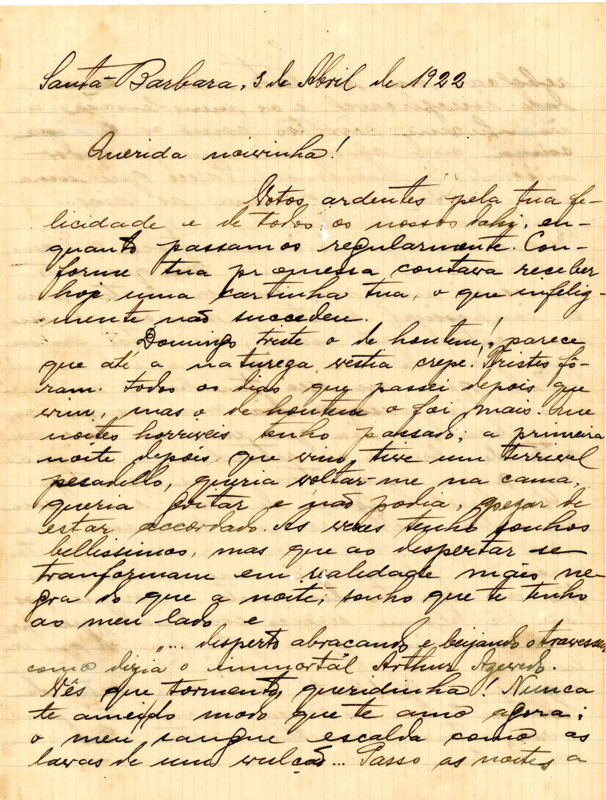 Santa Barbara, 3 de Abril de 1922
Querida noivinha!
Votos ardentes pela tua fe-
licidade e de todos os nossos dahi, en-
quanto passamos regularmente. Con-
forme tua promessa contava receber
hoje uma cartinha tua, o que infeliz-
mente não succedeu.
Domingo triste o de hontem!, parece
que até a natureza vestia crepe! Tristes fô-
ram todos os dias que passei depois que
vim, mas o de hontem o foi mais. Que
noites horriveis tenho passado; a primeira
noite depois que vim, tive um terrivel
pesadello, queria voltar-me na cama,
queria gritar e não podia, apezar de
estar accordado. As vezes tenho sonhos
bellissimos, mas que ao despertar se
tranformam em realidade mais ne-
gra do que a noite; sonho que te tenho
ao meu lado e
"... desperto abraçando e beijando o travesseiro
como dizia o immortal Arthur Azevedo.
Vês que tormento, queridinha! Nunca
te amei do modo que te amo agora;
o meu sangue escalda como as
lavas de um vulcão... Passo as noites a